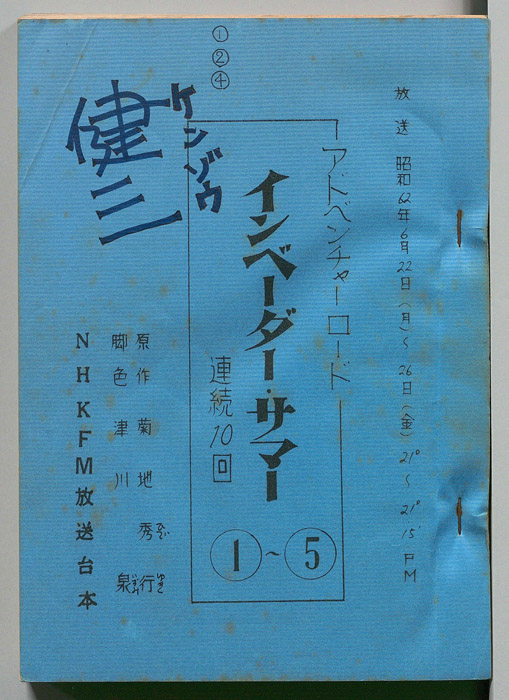 放送 昭和62年6月22日(月)~26日(金) 21°~21°15′PM
①
②
④
アドベンチャーロード
インベーダー・サマー
連続10回
①~⑤
ケンゾウ
健三
原作 菊地秀行
脚色 津川泉
NHKFM放送台本